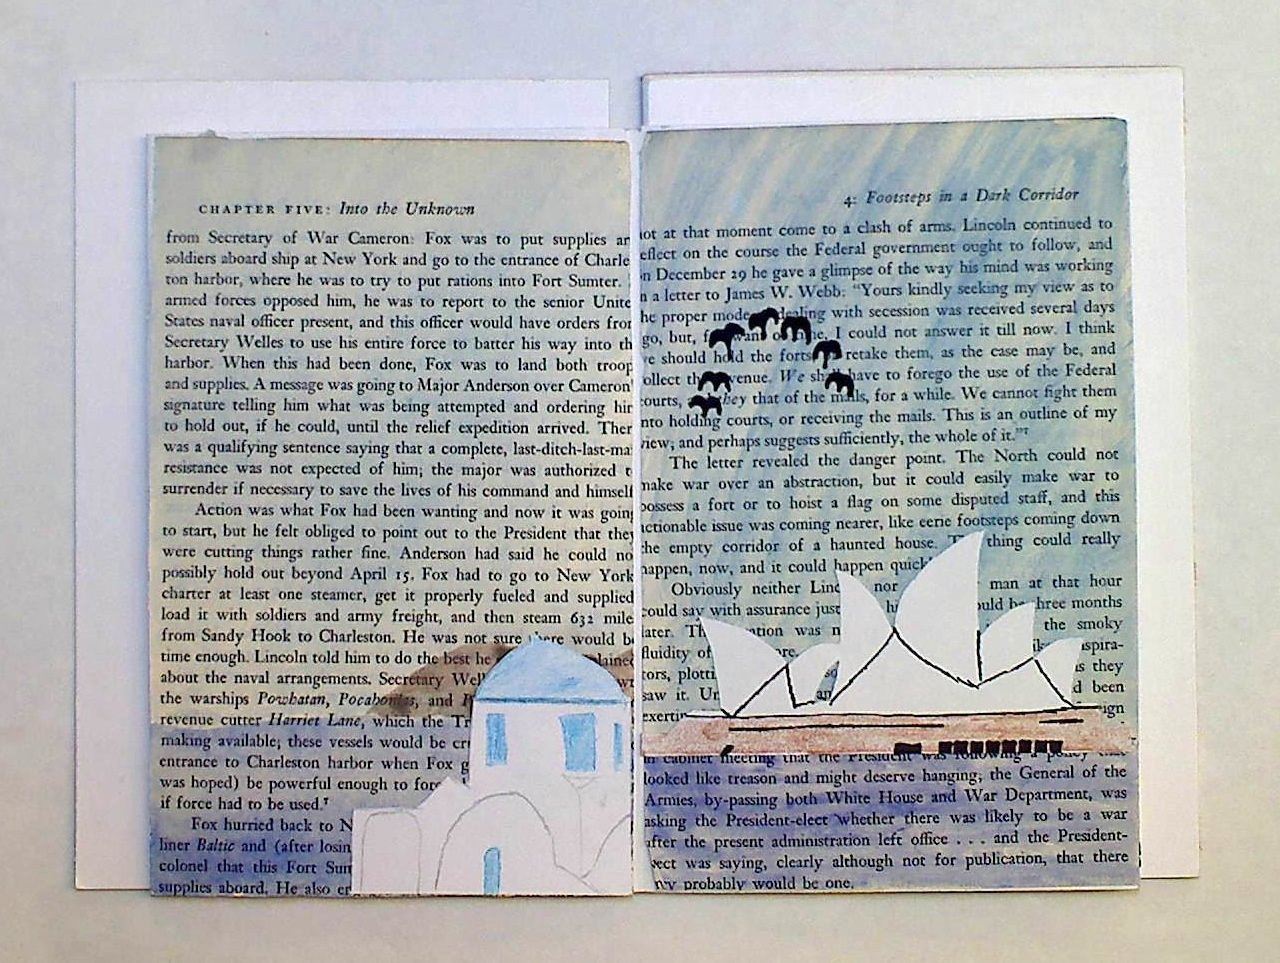 CHAPTER FIVE: Into the Unknown
from Secretary of War Cameron: Fox was to put supplies an
soldiers aboard ship at New York and go to the entrance of Charle
ton harbor, where he was to try to put rations into Fort Sumter.
armed forces opposed him, he was to report to the senior Unite
States naval officer present, and this officer would have orders from
Secretary Welles to use his entire force to batter his way into th
harbor. When this had been done, Fox was to land both troop
and supplies. A message was going to Major Anderson over Cameron'
signature telling him what was being attempted and ordering him
to hold out, if he could, until the relief expedition arrived. Ther
was a qualifying sentence saying that a complete, last-ditch-last-ma
resistance was not expected of him; the major was authorized t
surrender if necessary to save the lives of his command and himself
Action was what Fox had been wanting and now it was going
to start, but he felt obliged to point out to the President that they
were cutting things rather fine. Anderson had said he could no
possibly hold out beyond April 15. Fox had to go to New York
charter at least one steamer, get it properly fueled and supplied
load it with soldiers and army freight, and then steam 632 mile
from Sandy Hook to Charleston. He was not sure there would be
time enough. Lincoln told him to do the best he plaine
about the naval arrangements. Secretary Wel
the warships Powhatan, Pocahontas, and P
revenue cutter Harriet Lane, which the Tr
making available; these vessels would be cr
entrance to Charleston harbor when Fox g
was hoped) be powerful enough to forc
if force had to be used.⁷
Fox hurried back to N
liner Baltic and (after losin
colonel that this Fort Sum
supplies aboard. He also er
4: Footsteps in a Dark Corridor
not at that moment come to a clash of arms. Lincoln continued to
eflect on the course the Federal government ought to follow, and
n December 29 he gave a glimpse of the way his mind was working
n a letter to James W. Webb: "Yours kindly seeking my view as to
he proper mode dealing with secession was received several days
go, but, f want I could not answer it till now. I think
e should hold the forts, retake them, as the case may be, and
ollect th venue. We shall have to forego the use of the Federal
ourts, they that of the mails, for a while. We cannot fight them
nto holding courts, or receiving the mails. This is an outline of my
view, and perhaps suggests sufficiently, the whole of it."¹
The letter revealed the danger point. The North could not
make war over an abstraction, but it could easily make war to
possess a fort or to hoist a flag on some disputed staff, and this
actionable issue was coming nearer, like eerie footsteps coming down
the empty corridor of a haunted house. T thing could really
happen, now, and it could happen quick
Obviously neither Linc nor man at that hour
could say with assurance just hi ould be three months
later. Th ation was n the smoky
fluidity of ore. like spira-
tors, plotti so as they
saw it. Un an d been
exertin ign
in cabinet meeting that the President was following a policy that
looked like treason and might deserve hanging; the General of the
Armies, by-passing both White House and War Department, was
asking the President-elect whether there was likely to be a war
after the present administration left office . . . and the President-
ect was saying, clearly although not for publication, that there
ry probably would be one.